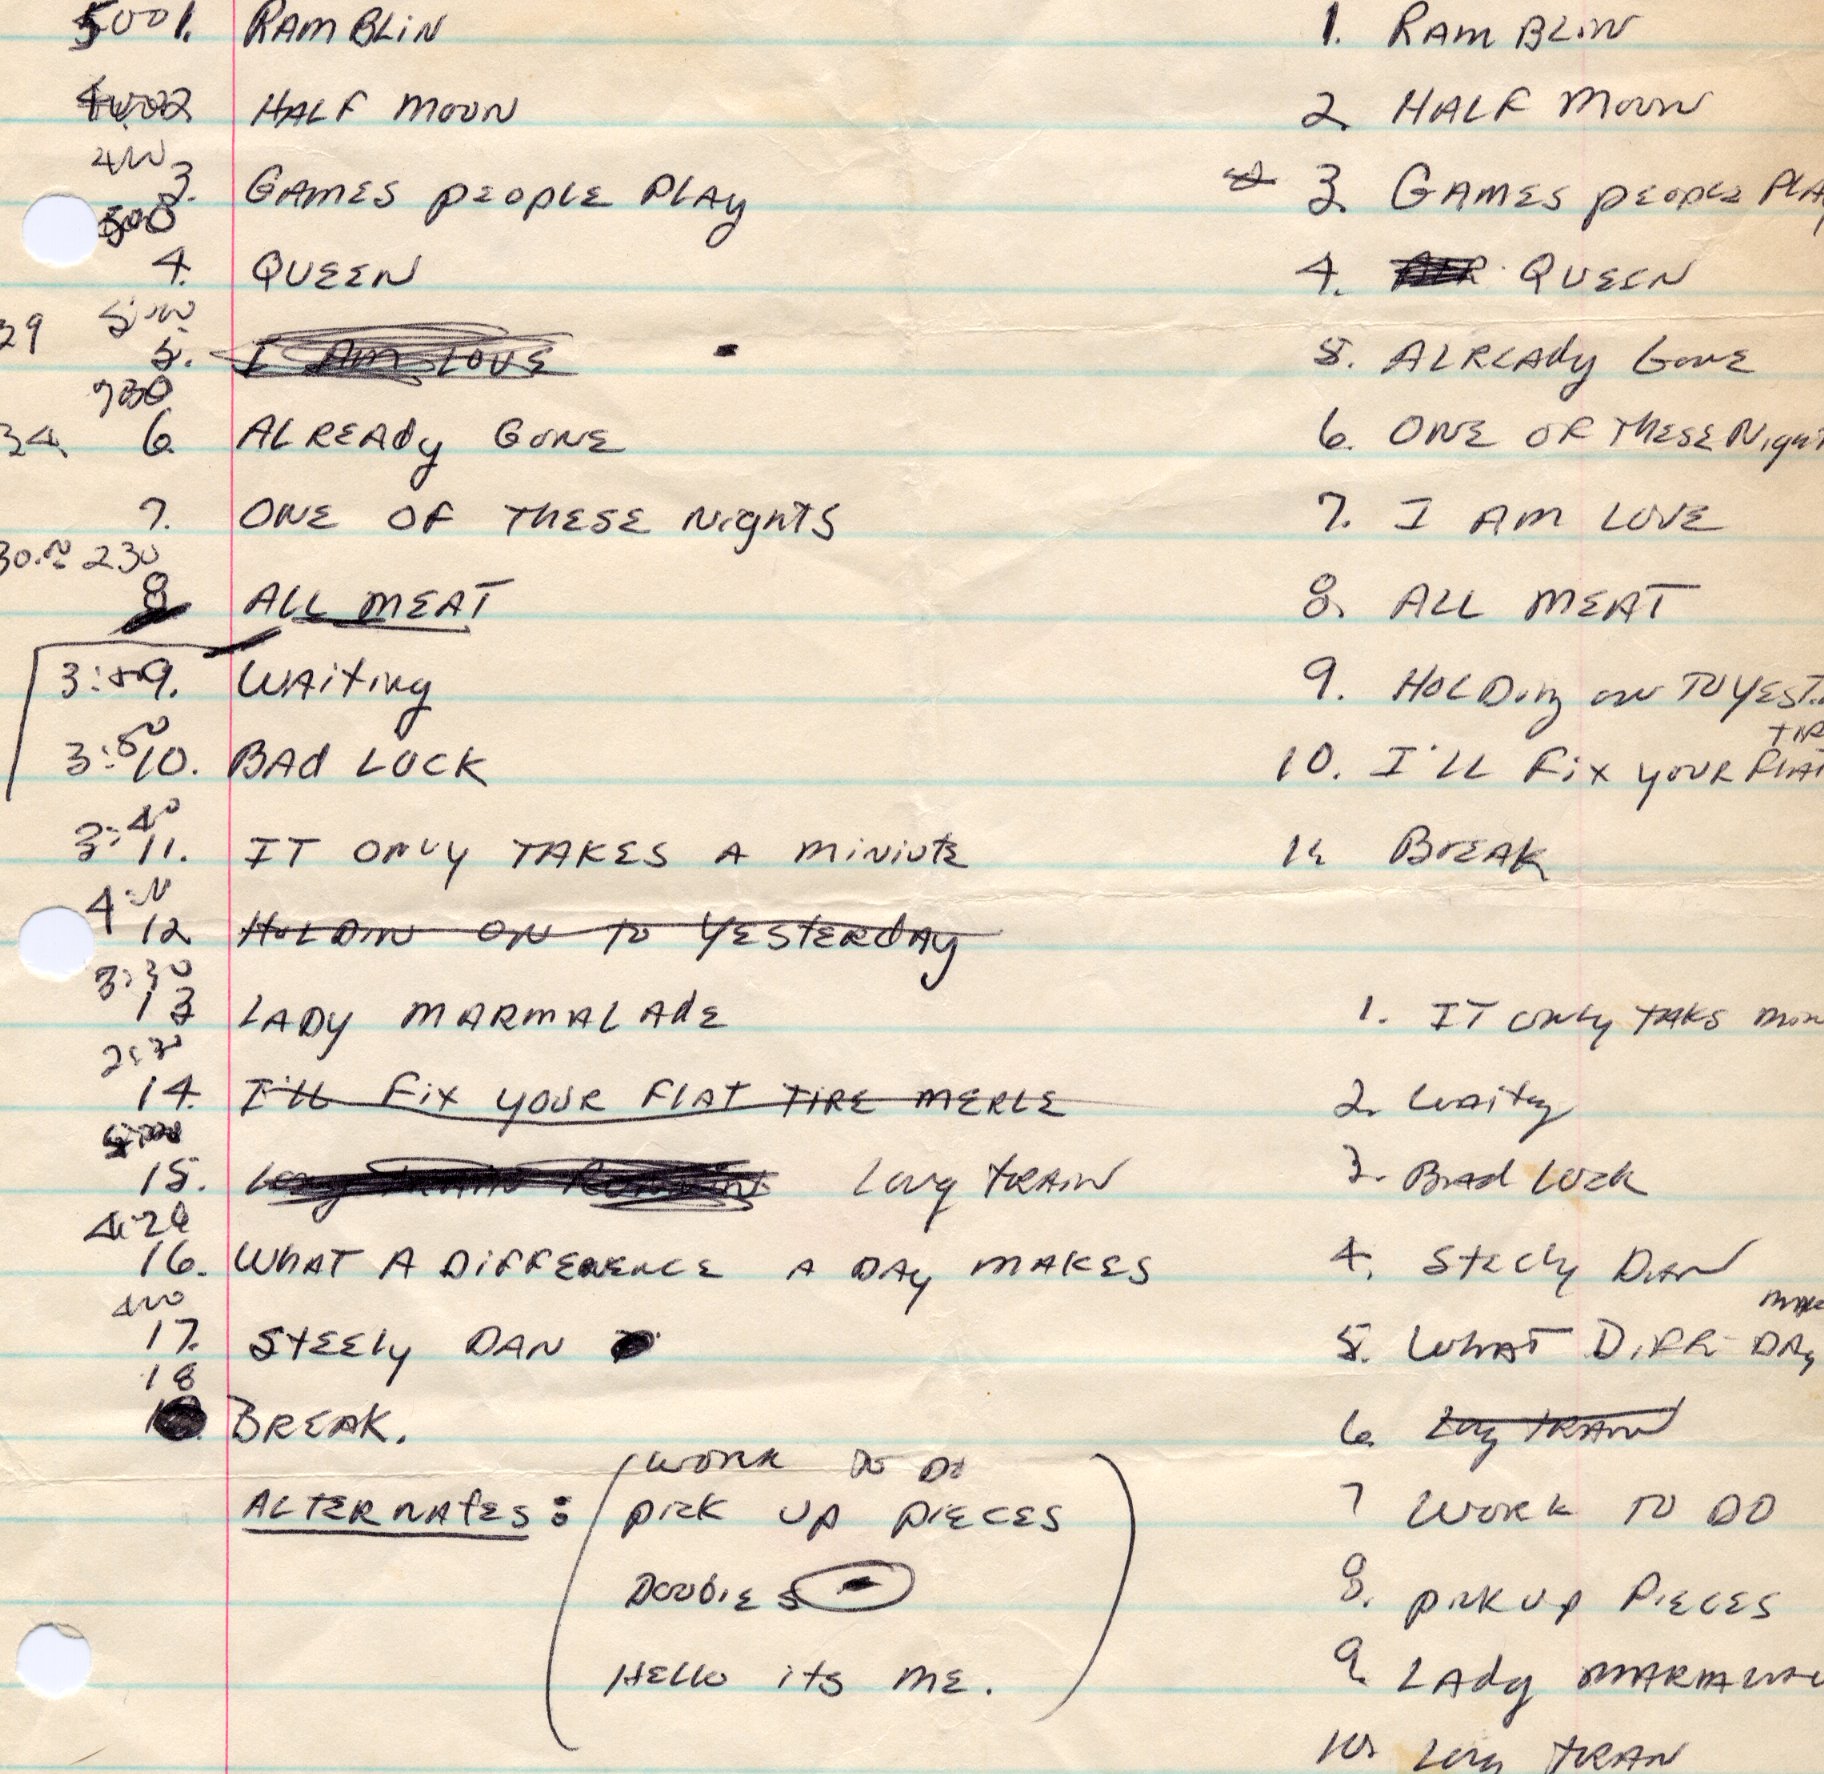 1. RAMBLIN
HALF MOON
3. GAMES PEOPLE PLAY
4. QUEEN
5. I AM LOVE
6. ALREADY GONE
7. ONE OF THESE NIGHTS
230
8 ALL MEAT
9. WAITING
3:50
10. BAD LUCK
3:40
11. IT ONLY TAKES A MINIUTE
12 HOLDIN ON TO YESTERDAY
3:30
13 LADY MARMALADE
14. I'LL FIX YOUR FLAT TIRE MERLE
15. LONG TRAIN RUNNIN LONG TRAIN
16. WHAT A DIFFERENCE A DAY MAKES
17. STEELY DAN
18
BREAK.
ALTERNATES:
WORK TO DO
PICK UP PIECES
DOOBIES
HELLO ITS ME.
1. RAMBLIN
2. HALF MOON
3. GAMES PEOPLE PLA
4. QUEEN
5. ALREADY GONE
6. ONE OF THESE NIGHT
7. I AM LOVE
8. ALL MEAT
9. HOLDING ON TO YEST.
10. I'LL FIX YOUR FLAT TIR
11. BREAK
1. IT ONLY TAKS MIN
2. WAITING
3. BAD LUCK
4. STEELY DAN
5. WHAT DIFF- DAY MAK
6. LONG TRAIN
7 WORK TO DO
8. PICK UP PIECES
9. LADY MARMALA
10. LONG TRAN